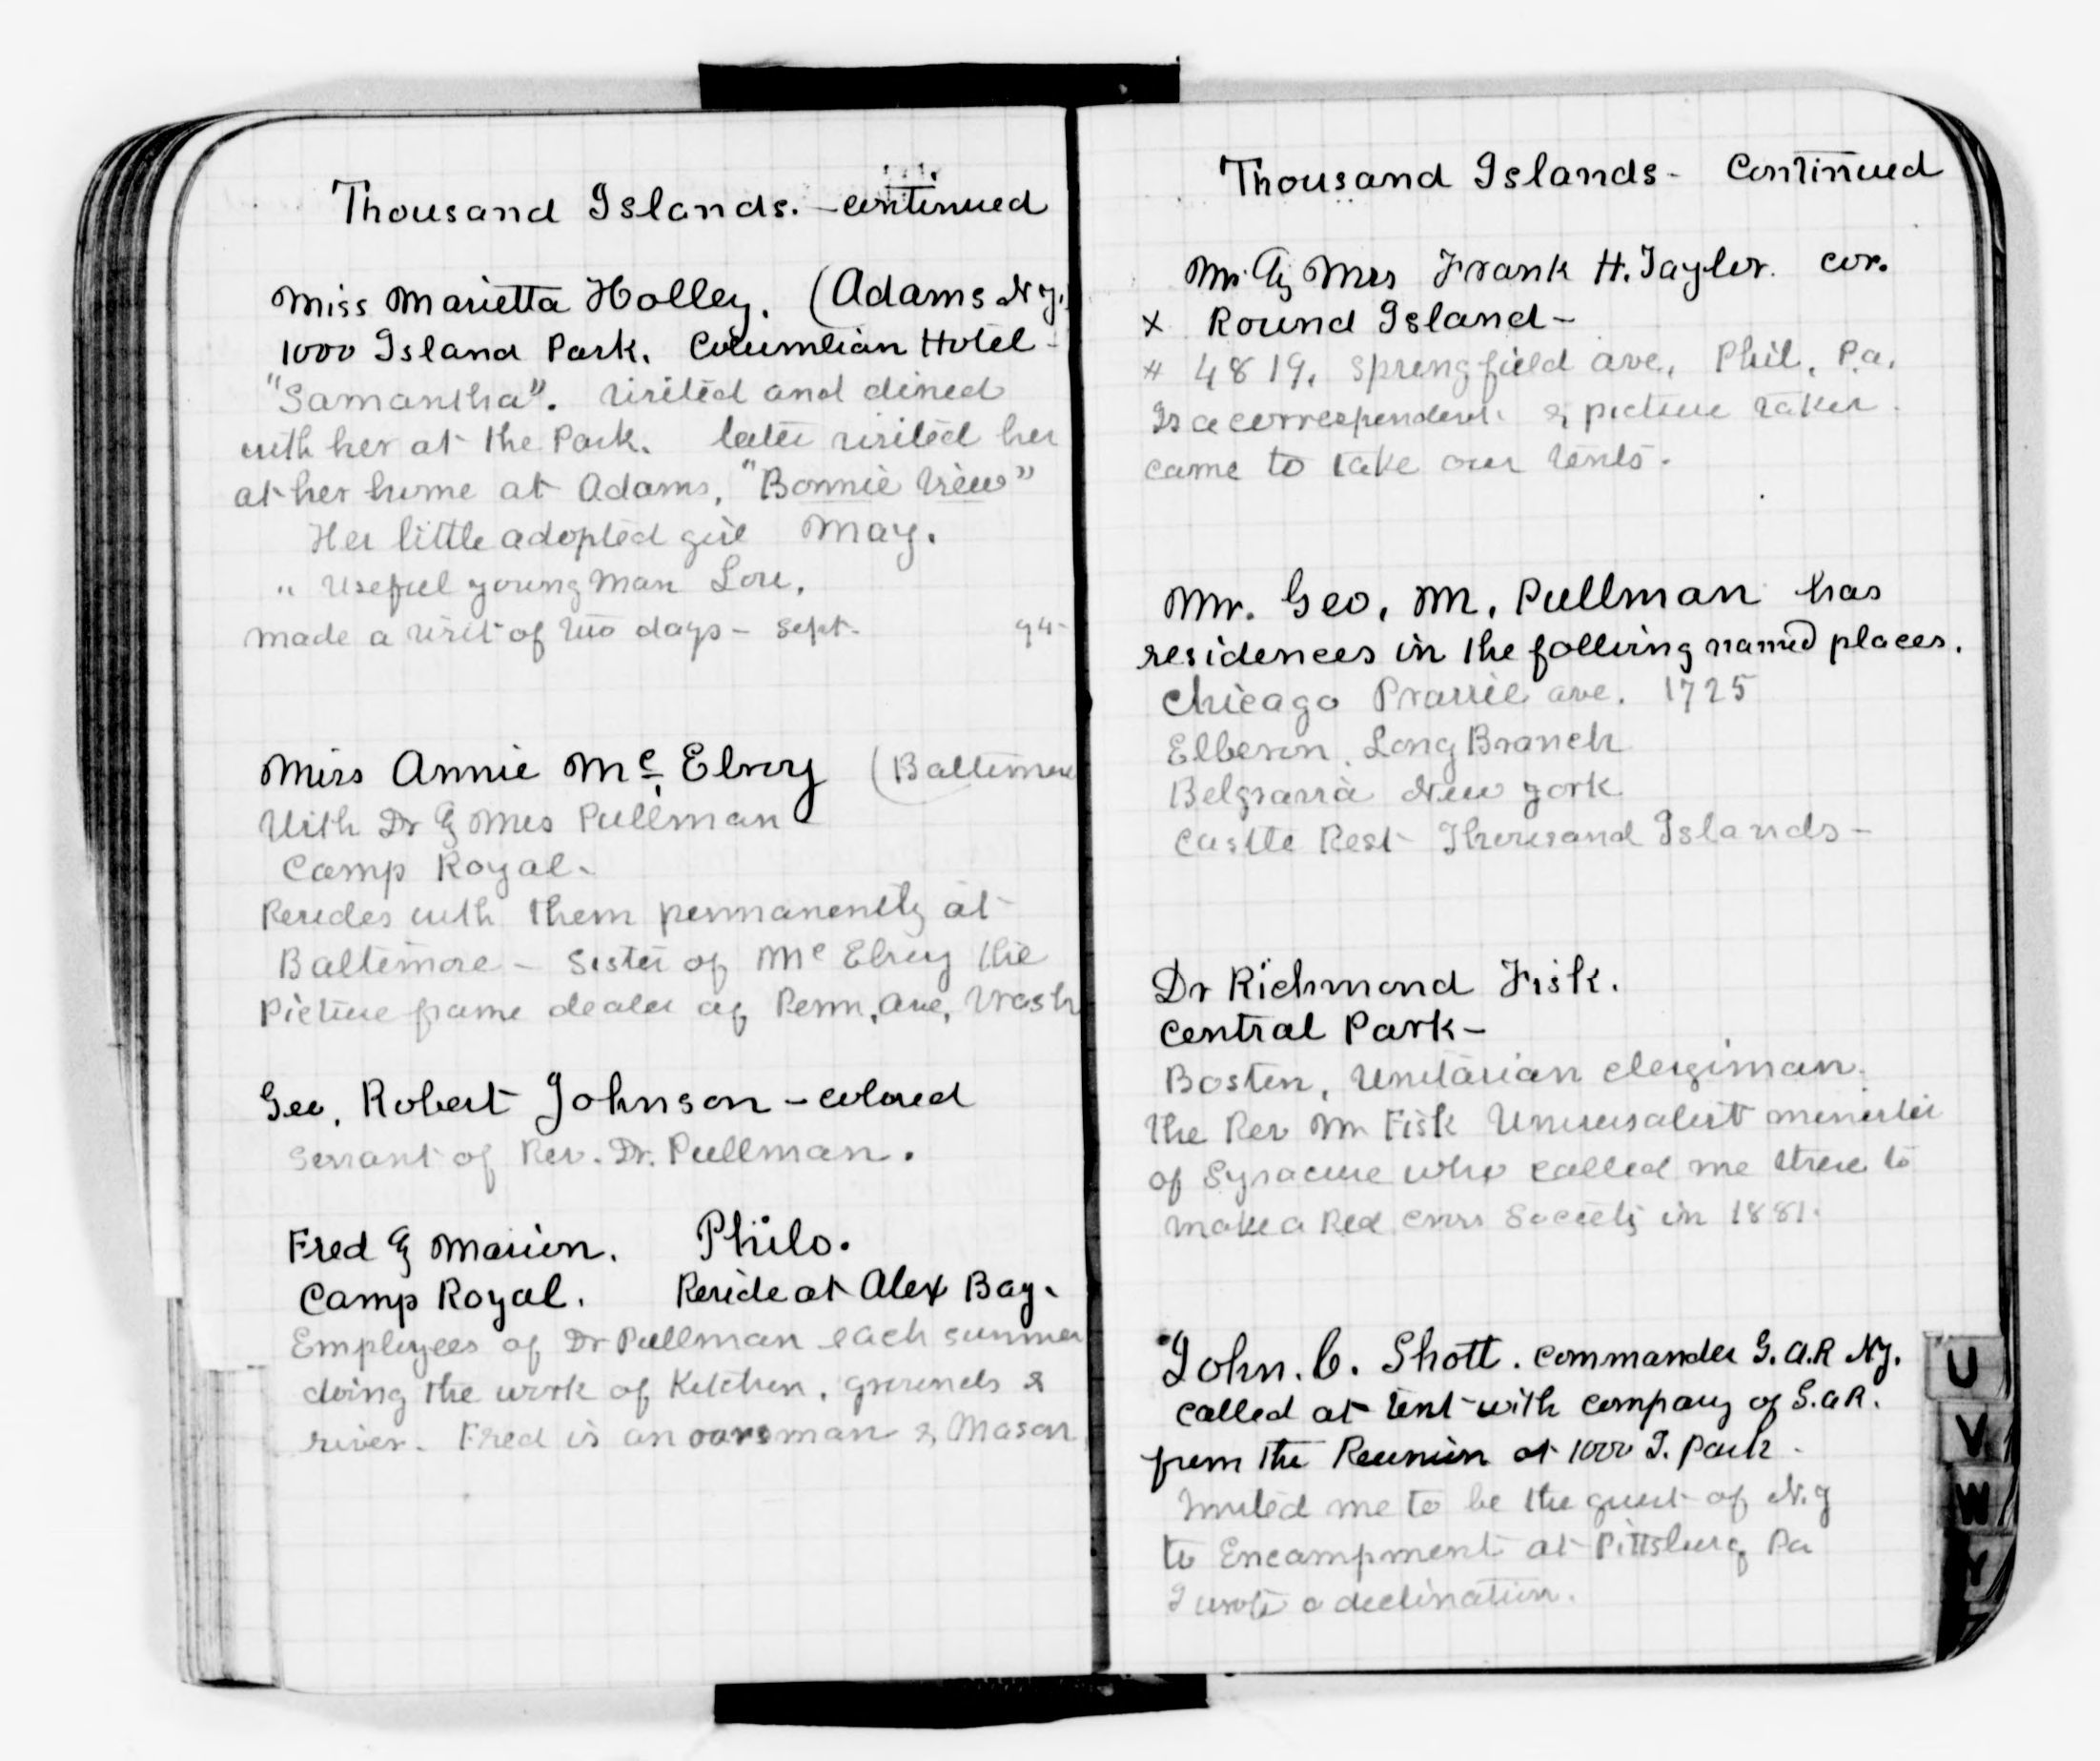 Thousand Islands. - continued
Miss Marietta Holley. (Adams N.Y.
1000 Island Park. Columbian Hotel -
"Samantha". visited and dined
with her at the Park. later visited her
at her home at Adams, "Bonnie View"
Her little adopted girl May.
" useful young man Lou.
made a visit of two days - Sept. 94-
Miss Annie McElroy (Baltimore
With Dr & Mrs Pullman
Camp Royal.
Resides with them permanently at
Baltimore - Sister of McElroy the
Picture frame dealer of Penn, Ave, Wash
Geo. Robert Johnson - colored
Servant of Rev. Dr. Pullman.
Fred & Marion. Philo.
Camp Royal. Reside at Alex Bay.
Employees of Dr Pullman each summer
doing the work of Kitchen, grounds &
river. Fred is an oarsman & Mason
Thousand Islands - Continued
Mr. & Mrs Frank H. Taylor. cor.
x Round Island -
# 4819, Springfield ave, Phil, Pa.
Is a correspondent & picture taker.
came to take our tents.
Mr. Geo, M, Pullman has
residences in the folloing named places.
Chicago Prairie ave. 1725
Elberon, Long Branch
New York
Castle Rest Thousand Islands -
Dr Richmond Fisk.
Central Park -
Boston, Unitarian clergiman.
the Rev Mr Fisk Universalist minister
of Syracuse who called me there to
make a Red Cross Society in 1881.
John. C. Shott. Commander G.A.R NY.
called at tent with company of G.A.R.
from the Reunion at 1000 I. Park.
Invited me to be the guest of N.Y
to Encampment at Pittsburg Pa
I wrote a declination.
U
V
W
Y